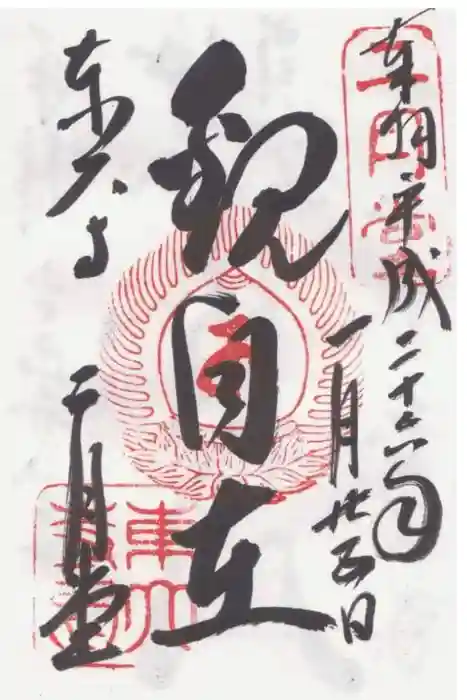 奉拝 平成二十六年
一月廿五日
観自在
東大寺
二月堂
二月堂